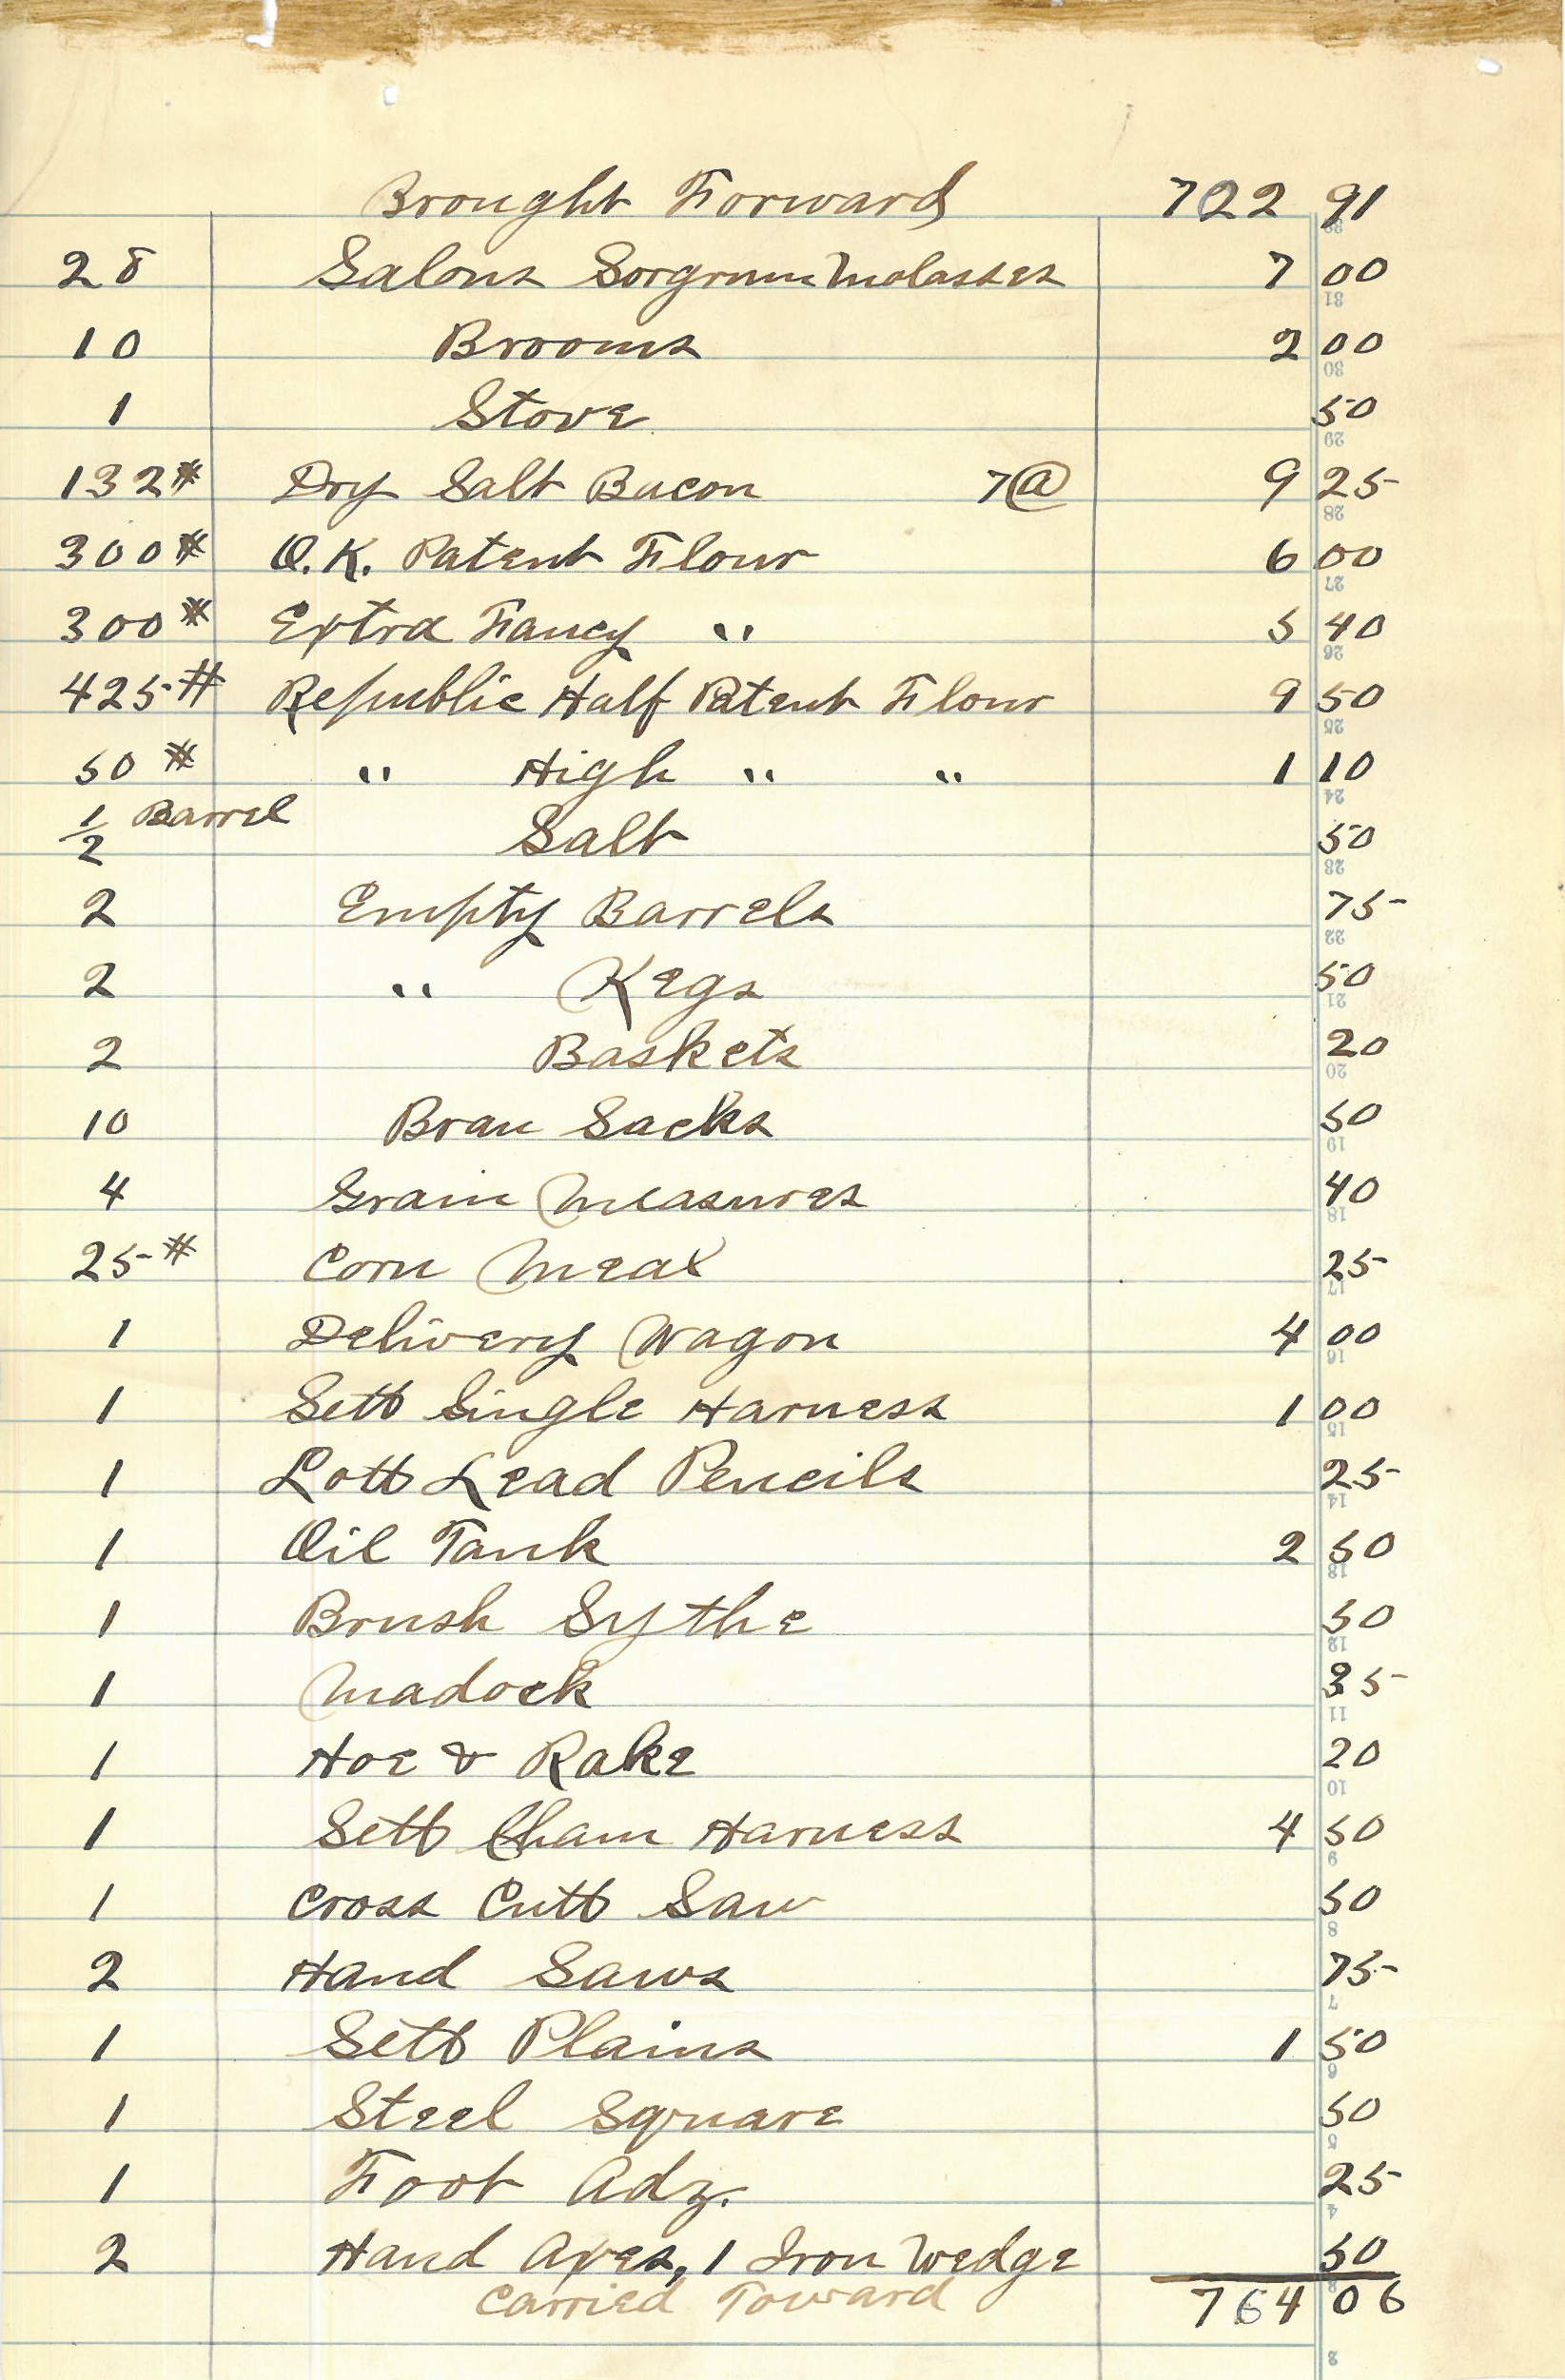 Brought Forward 722 91
28 Galons Sorgrum Molasses 7 00
10 Brooms 2 00
1 Stove 50
132# Dry Salt Bacon 7@ 9 25
300# O.K. Patent Flour 6 00
300# Extra Fancy " 5 40
425# Republic Half Patent Flour 9 50
50# " High " " 1 10
1/2 Barrel Salt 50
2 Empty Barrels 75
2 " Kegs 50
2 Baskets 20
10 Bran Sacks 50
4 Grain Measures 40
25# Corn Meal 25
1 Delivery Wagon 4 00
1 Sett Single Harness 1 00
1 Lott Lead Pencils 25
1 Oil Tank 2 50
1 Brush Sythe 50
1 Madock 35
1 Hoe & Rake 20
1 Sett Cham Harness 4 50
1 Cross Cutt Saw 50
2 Hand Saws 75
1 Sett Plains 1 50
1 Steel Square 50
1 Foot Adz. 25
2 Hand Axes, 1 Iron Wedge 50
Carried Toward 764 06